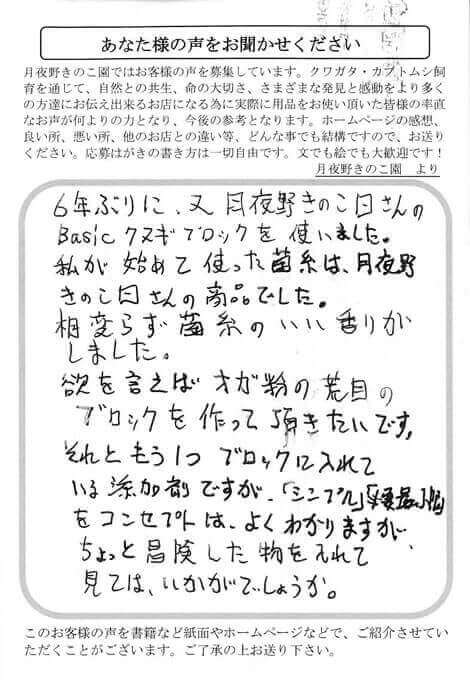 あなた様の声をお聞かせください
月夜野きのこ園ではお客様の声を募集しています。クワガタ・カブトムシ飼
育を通じて、自然との共生、命の大切さ、さまざまな発見と感動をより多く
の方達にお伝え出来るお店になる為に実際に用品をお使い頂いた皆様の率直
なお声が何よりの力となり、今後の参考となります。ホームページの感想、
良い所、悪い所、他のお店との違い等、どんな事でも結構ですので、お送り
ください。応募はがきの書き方は一切自由です。文でも絵でも大歓迎です!
月夜野きのこ園 より
6年ぶりに、又 月夜野きのこ園さんの
Basic クヌギブロックを 使いました。
私が 始めて 使った菌糸は、月夜野
きのこ園さんの商品でした。
相変らず菌糸のいい香りが
しました。
欲を言えば オガ粉の 荒目の
ブロックを作って頂きたいです。
それともう1つ ブロックに入れて
いる添加剤ですが、「シンプル」「
をコンセプトは、よくわかりますが
ちょっと冒険した物を入れて
見ては、いかがでしょうか。
このお客様の声を書籍など紙面やホームページなどで、ご紹介させてい
ただくことがございます。ご了承の上お送り下さい。